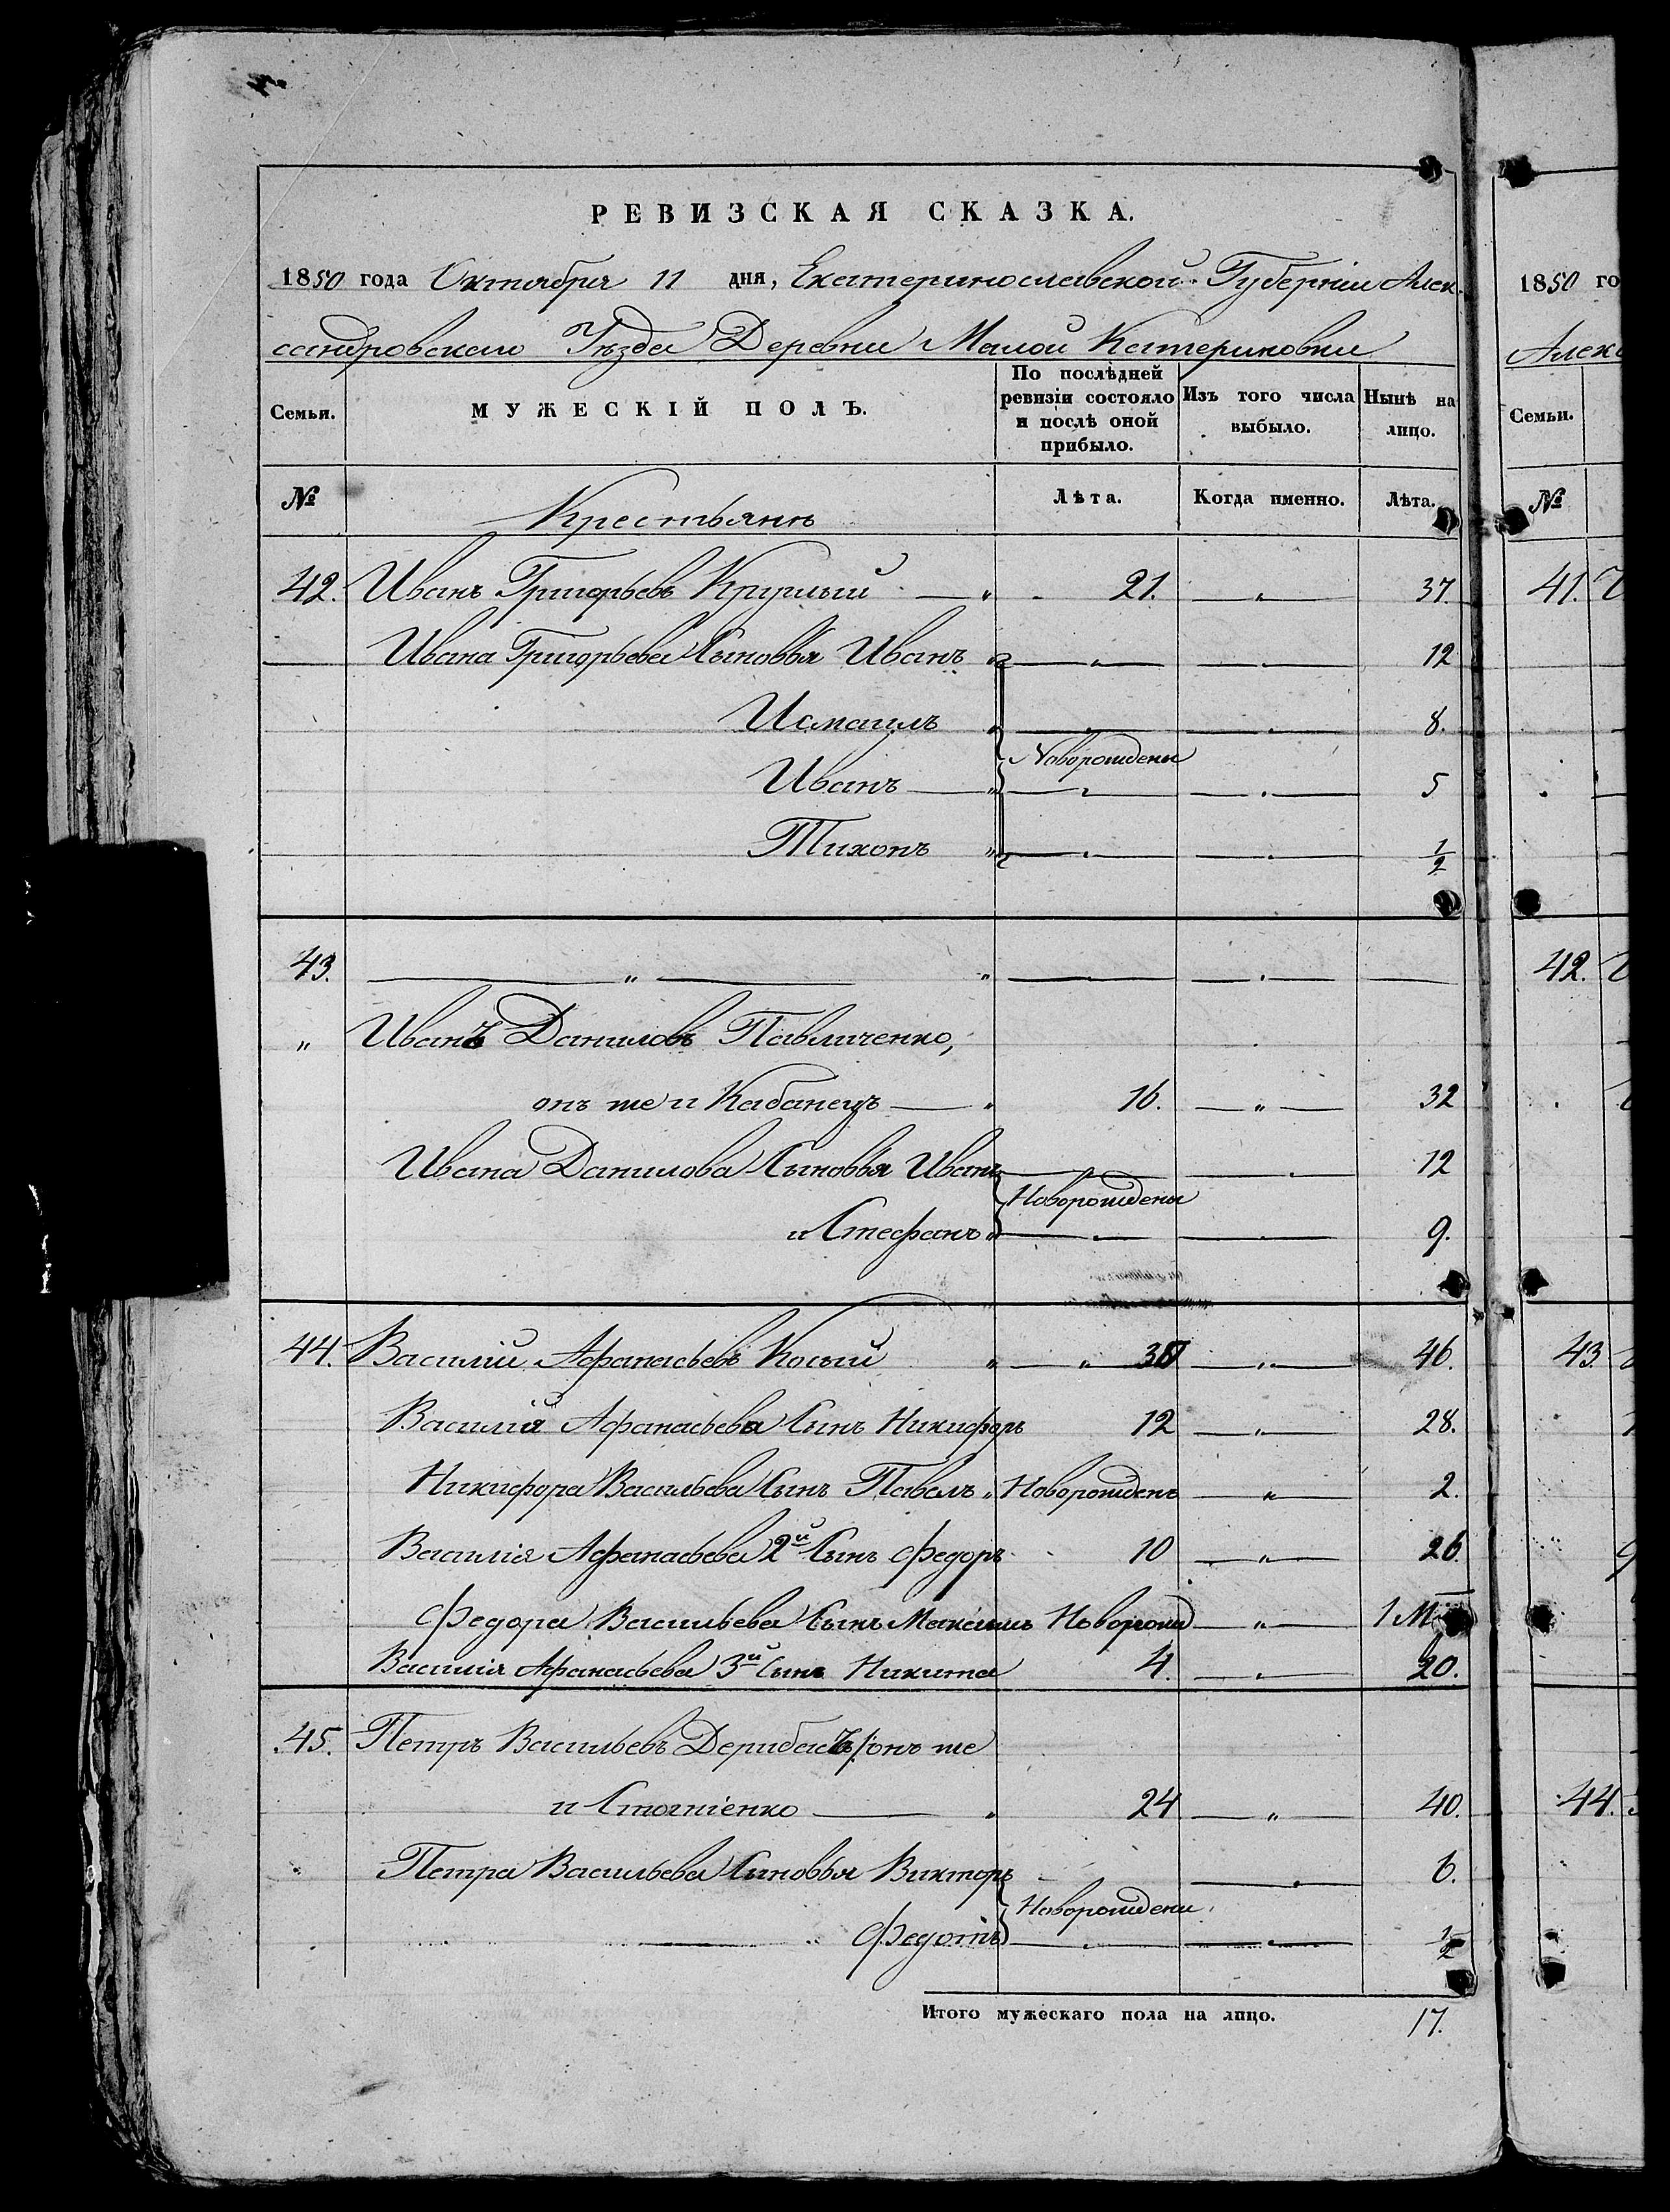 РЕВИЗСКАЯ СКАЗКА.
1850 года Октября 11 дня, Екатеринославской Губерніи Алек-
сандровскаго Уѣзда Деревни Малой Катериновки
Семьи. МУЖЕСКІЙ ПОЛЪ. По послѣдней ревизіи состояло и послѣ оной прибыло. Изъ того числа выбыло. Нынѣ на лицо.
№ Крестьянъ Лѣта. Когда именно. Лѣта.
42. Иванъ Григорьевъ Круглый — " 21. — " — 37.
Ивана Григорьева Сыновья Иванъ " — " — — " — 12
Исмаилъ " — " — — " — 8.
Новорождены
Иванъ — " — " — — " — 5
Тихонъ " — " — — " — 1/2
43. — " — " — " — — " — —
" Иванъ Даниловъ Павличенко,
онъ же и Кабанецъ — " 16. — " — 32
Ивана Данилова Сыновья Иванъ — " — — " — 12
Новорождены
и Стефанъ " — " — — " — 9.
44. Василій Афанасьевъ Косый " — " 30 — " — 46.
Василія Афанасьева Сынъ Никифоръ 12 — " — 28.
Никифора Васильева Сынъ Павелъ " Новорожденъ — " — 2.
Василія Афанасьева 2й Сынъ Федоръ 10 — " — 26.
Федора Васильева Сынъ Максимъ Новорожд — " — 1 М
Василія Афанасьева 3й Сынъ Никита 4. — " — 20.
45. Петръ Васильевъ Дерибасъ /: онъ же
и Стогніенко — " 24 — " — 40.
Петра Васильева Сыновья Викторъ — " — 6.
Новорождены
Федотъ — " — — " — 1/2
Итого мужескаго пола на лицо. 17.
1850 го
Алекс
Семьи.
№
41.
42.
43.
44.